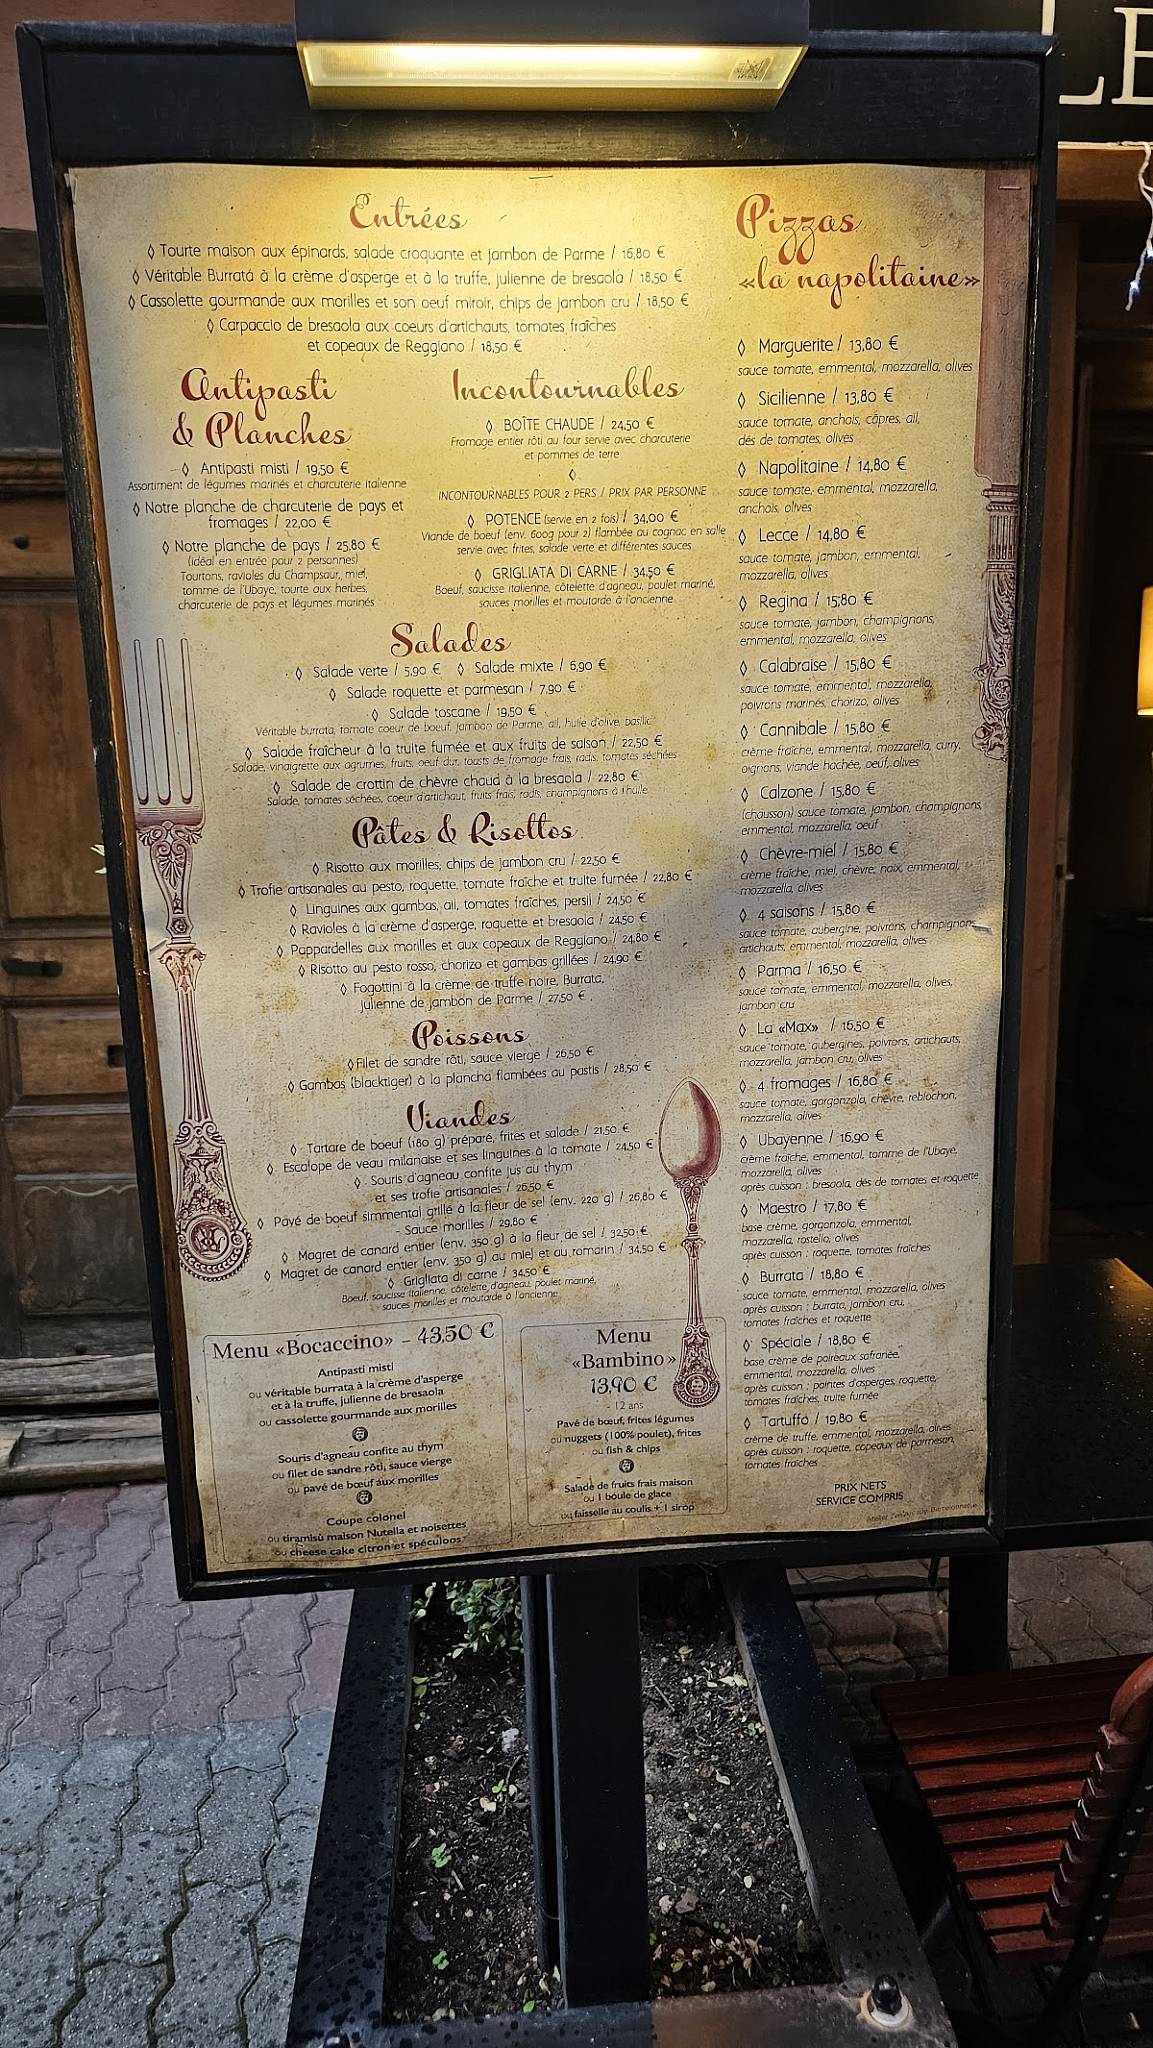 LE
Entrées
◊ Tourte maison aux épinards, salade croquante et jambon de Parme / 16,80 €
◊ Véritable Burrata à la crème d'asperge et à la truffe, julienne de bresaola / 18,50 €
◊ Cassolette gourmande aux morilles et son oeuf miroir, chips de jambon cru / 18,50 €
◊ Carpaccio de bresaola aux coeurs d'artichauts, tomates fraîches
et copeaux de Reggiano / 18,50 €
Antipasti
& Planches
◊ Antipasti misti / 19,50 €
Assortiment de légumes marinés et charcuterie italienne
◊ Notre planche de charcuterie de pays et
fromages / 22,00 €
◊ Notre planche de pays / 25,80 €
(idéal en entrée pour 2 personnes)
Tourtons, ravioles du Champsaur, miel,
tomme de l'Ubaye, tourte aux herbes,
charcuterie de pays et légumes marinés
Incontournables
◊ BOÎTE CHAUDE / 24,50 €
Fromage entier rôti au four servie avec charcuterie
et pommes de terre
◊
INCONTOURNABLES POUR 2 PERS / PRIX PAR PERSONNE
◊ POTENCE (servie en 2 fois) / 34,00 €
Viande de boeuf (env. 600g pour 2) flambée au cognac en salle
servie avec frites, salade verte et différentes sauces
◊ GRIGLIATA DI CARNE / 34,50 €
Boeuf, saucisse italienne, côtelette d'agneau, poulet mariné,
sauces morilles et moutarde à l'ancienne
Salades
◊ Salade verte / 5,90 € ◊ Salade mixte / 6,90 €
◊ Salade roquette et parmesan / 7,90 €
◊ Salade toscane / 19,50 €
Véritable burrata, tomate coeur de boeuf, jambon de Parme, ail, huile d'olive, basilic
◊ Salade fraîcheur à la truite fumée et aux fruits de saison / 22,50 €
Salade, vinaigrette aux agrumes, fruits, oeuf dur, toasts de fromage frais, radis, tomates séchées
◊ Salade de crottin de chèvre chaud à la bresaola / 22,80 €
Salade, tomates séchées, coeur d'artichaut, fruits frais, radis, champignons à l'huile
Pâtes & Risottos
◊ Risotto aux morilles, chips de jambon cru / 22,50 €
◊ Trofie artisanales au pesto, roquette, tomate fraîche et truite fumée / 22,80 €
◊ Linguines aux gambas, ail, tomates fraîches, persil / 24,50 €
◊ Ravioles à la crème d'asperge, roquette et bresaola / 24,50 €
◊ Pappardelles aux morilles et aux copeaux de Reggiano / 24,80 €
◊ Risotto au pesto rosso, chorizo et gambas grillées / 24,90 €
◊ Fogottini à la crème de truffe noire, Burrata,
julienne de jambon de Parme / 27,50 €
Poissons
◊ Filet de sandre rôti, sauce vierge / 26,50 €
◊ Gambas (blacktiger) à la plancha flambées au pastis / 28,50 €
Viandes
◊ Tartare de boeuf (180 g) préparé, frites et salade / 21,50 €
◊ Escalope de veau milanaise et ses linguines à la tomate / 24,50 €
◊ Souris d'agneau confite jus au thym
et ses trofie artisanales / 26,50 €
◊ Pavé de boeuf simmental grillé à la fleur de sel (env. 220 g) / 26,80 €
- Sauce morilles / 29,80 €
◊ Magret de canard entier (env. 350 g) à la fleur de sel / 32,50 €
◊ Magret de canard entier (env. 350 g) au miel et au romarin / 34,50 €
◊ Grigliata di carne / 34,50 €
Boeuf, saucisse italienne, côtelette d'agneau, poulet mariné,
sauces morilles et moutarde à l'ancienne
Menu «Bocaccino» - 43,50 €
Antipasti misti
ou véritable burrata à la crème d'asperge
et à la truffe, julienne de bresaola
ou cassolette gourmande aux morilles
Souris d'agneau confite au thym
ou filet de sandre rôti, sauce vierge
ou pavé de bœuf aux morilles
Coupe colonel
ou tiramisù maison Nutella et noisettes
ou cheese cake citron et spéculoos
Menu
«Bambino»
13,90 €
- 12 ans
Pavé de bœuf, frites légumes
ou nuggets (100% poulet), frites
ou fish & chips
Salade de fruits frais maison
ou 1 boule de glace
ou faisselle au coulis + 1 sirop
Pizzas
«la napolitaine»
◊ Marguerite / 13,80 €
sauce tomate, emmental, mozzarella, olives
◊ Sicilienne / 13,80 €
sauce tomate, anchois, câpres, ail,
dés de tomates, olives
◊ Napolitaine / 14,80 €
sauce tomate, emmental, mozzarella,
anchois, olives
◊ Lecce / 14,80 €
sauce tomate, jambon, emmental,
mozzarella, olives
◊ Regina / 15,80 €
sauce tomate, jambon, champignons,
emmental, mozzarella, olives
◊ Calabraise / 15,80 €
sauce tomate, emmental, mozzarella,
poivrons marinés, chorizo, olives
◊ Cannibale / 15,80 €
crème fraîche, emmental, mozzarella, curry,
oignons, viande hachée, oeuf, olives
◊ Calzone / 15,80 €
(chausson) sauce tomate, jambon, champignons,
emmental, mozzarella, oeuf
◊ Chèvre-miel / 15,80 €
crème fraîche, miel, chèvre, noix, emmental,
mozzarella, olives
◊ 4 saisons / 15,80 €
sauce tomate, aubergine, poivrons, champignons,
artichauts, emmental, mozzarella, olives
◊ Parma / 16,50 €
sauce tomate, emmental, mozzarella, olives,
jambon cru
◊ La «Max» / 16,50 €
sauce tomate, aubergines, poivrons, artichauts,
mozzarella, jambon cru, olives
◊ 4 fromages / 16,80 €
sauce tomate, gorgonzola, chèvre, reblochon,
mozzarella, olives
◊ Ubayenne / 16,90 €
crème fraîche, emmental, tomme de l'Ubaye,
mozzarella, olives
après cuisson : bresaola, dés de tomates et roquette
◊ Maestro / 17,80 €
base crème, gorgonzola, emmental,
mozzarella, rostello, olives
après cuisson : roquette, tomates fraîches
◊ Burrata / 18,80 €
sauce tomate, emmental, mozzarella, olives
après cuisson : burrata, jambon cru,
tomates fraîches et roquette
◊ Spéciale / 18,80 €
base crème de poireaux safranée,
emmental, mozzarella, olives
après cuisson : pointes d'asperges, roquette,
tomates fraîches, truite fumée
◊ Tartuffo / 19,80 €
crème de truffe, emmental, mozzarella, olives
après cuisson : roquette, copeaux de parmesan,
tomates fraîches
PRIX NETS
SERVICE COMPRIS